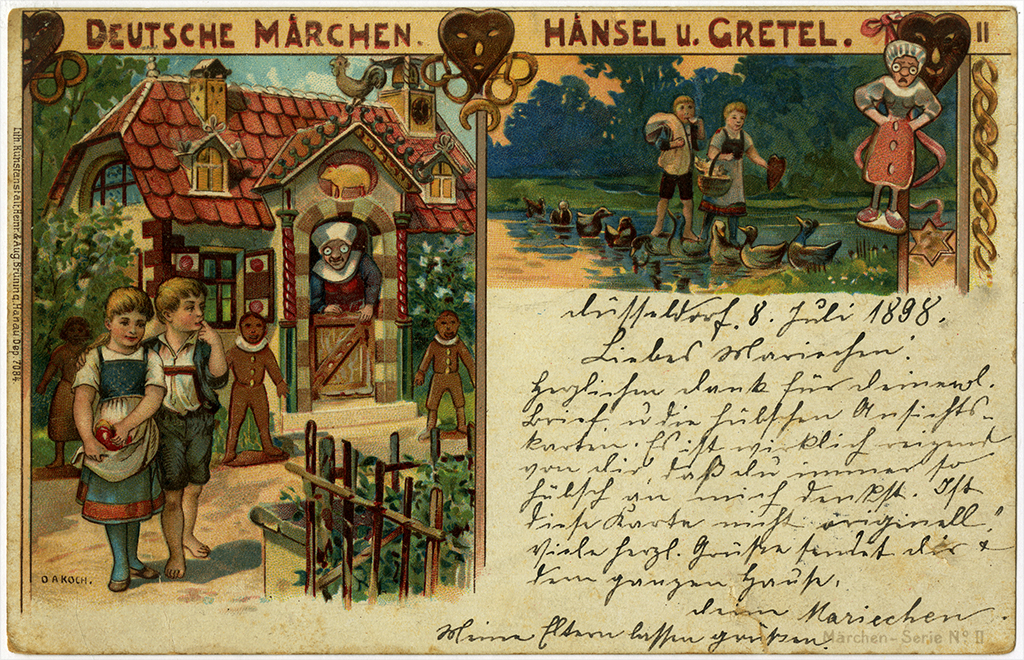 DEUTSCHE MÄRCHEN.
HÄNSEL U. GRETEL.
II
Düsseldorf. 8. Juli 1898.
Liebes Mariechen!
Herzlichen Dank für Deinen
Brief u die hübschen Ansichts-
karten. Es ist wirklich reizend
von dir, daß du immer so
hübsch an mich denkst. Ist
diese Karte nicht originell!
Viele herzl. Grüße sendet dir &
dem ganzen Hause,
deine Mariechen
Meine Eltern lassen grüßen.
Märchen-Serie No II
O A KOCH.
Lith. Kunstanstalt Aug. Brüning, Hanau Dep. 7084